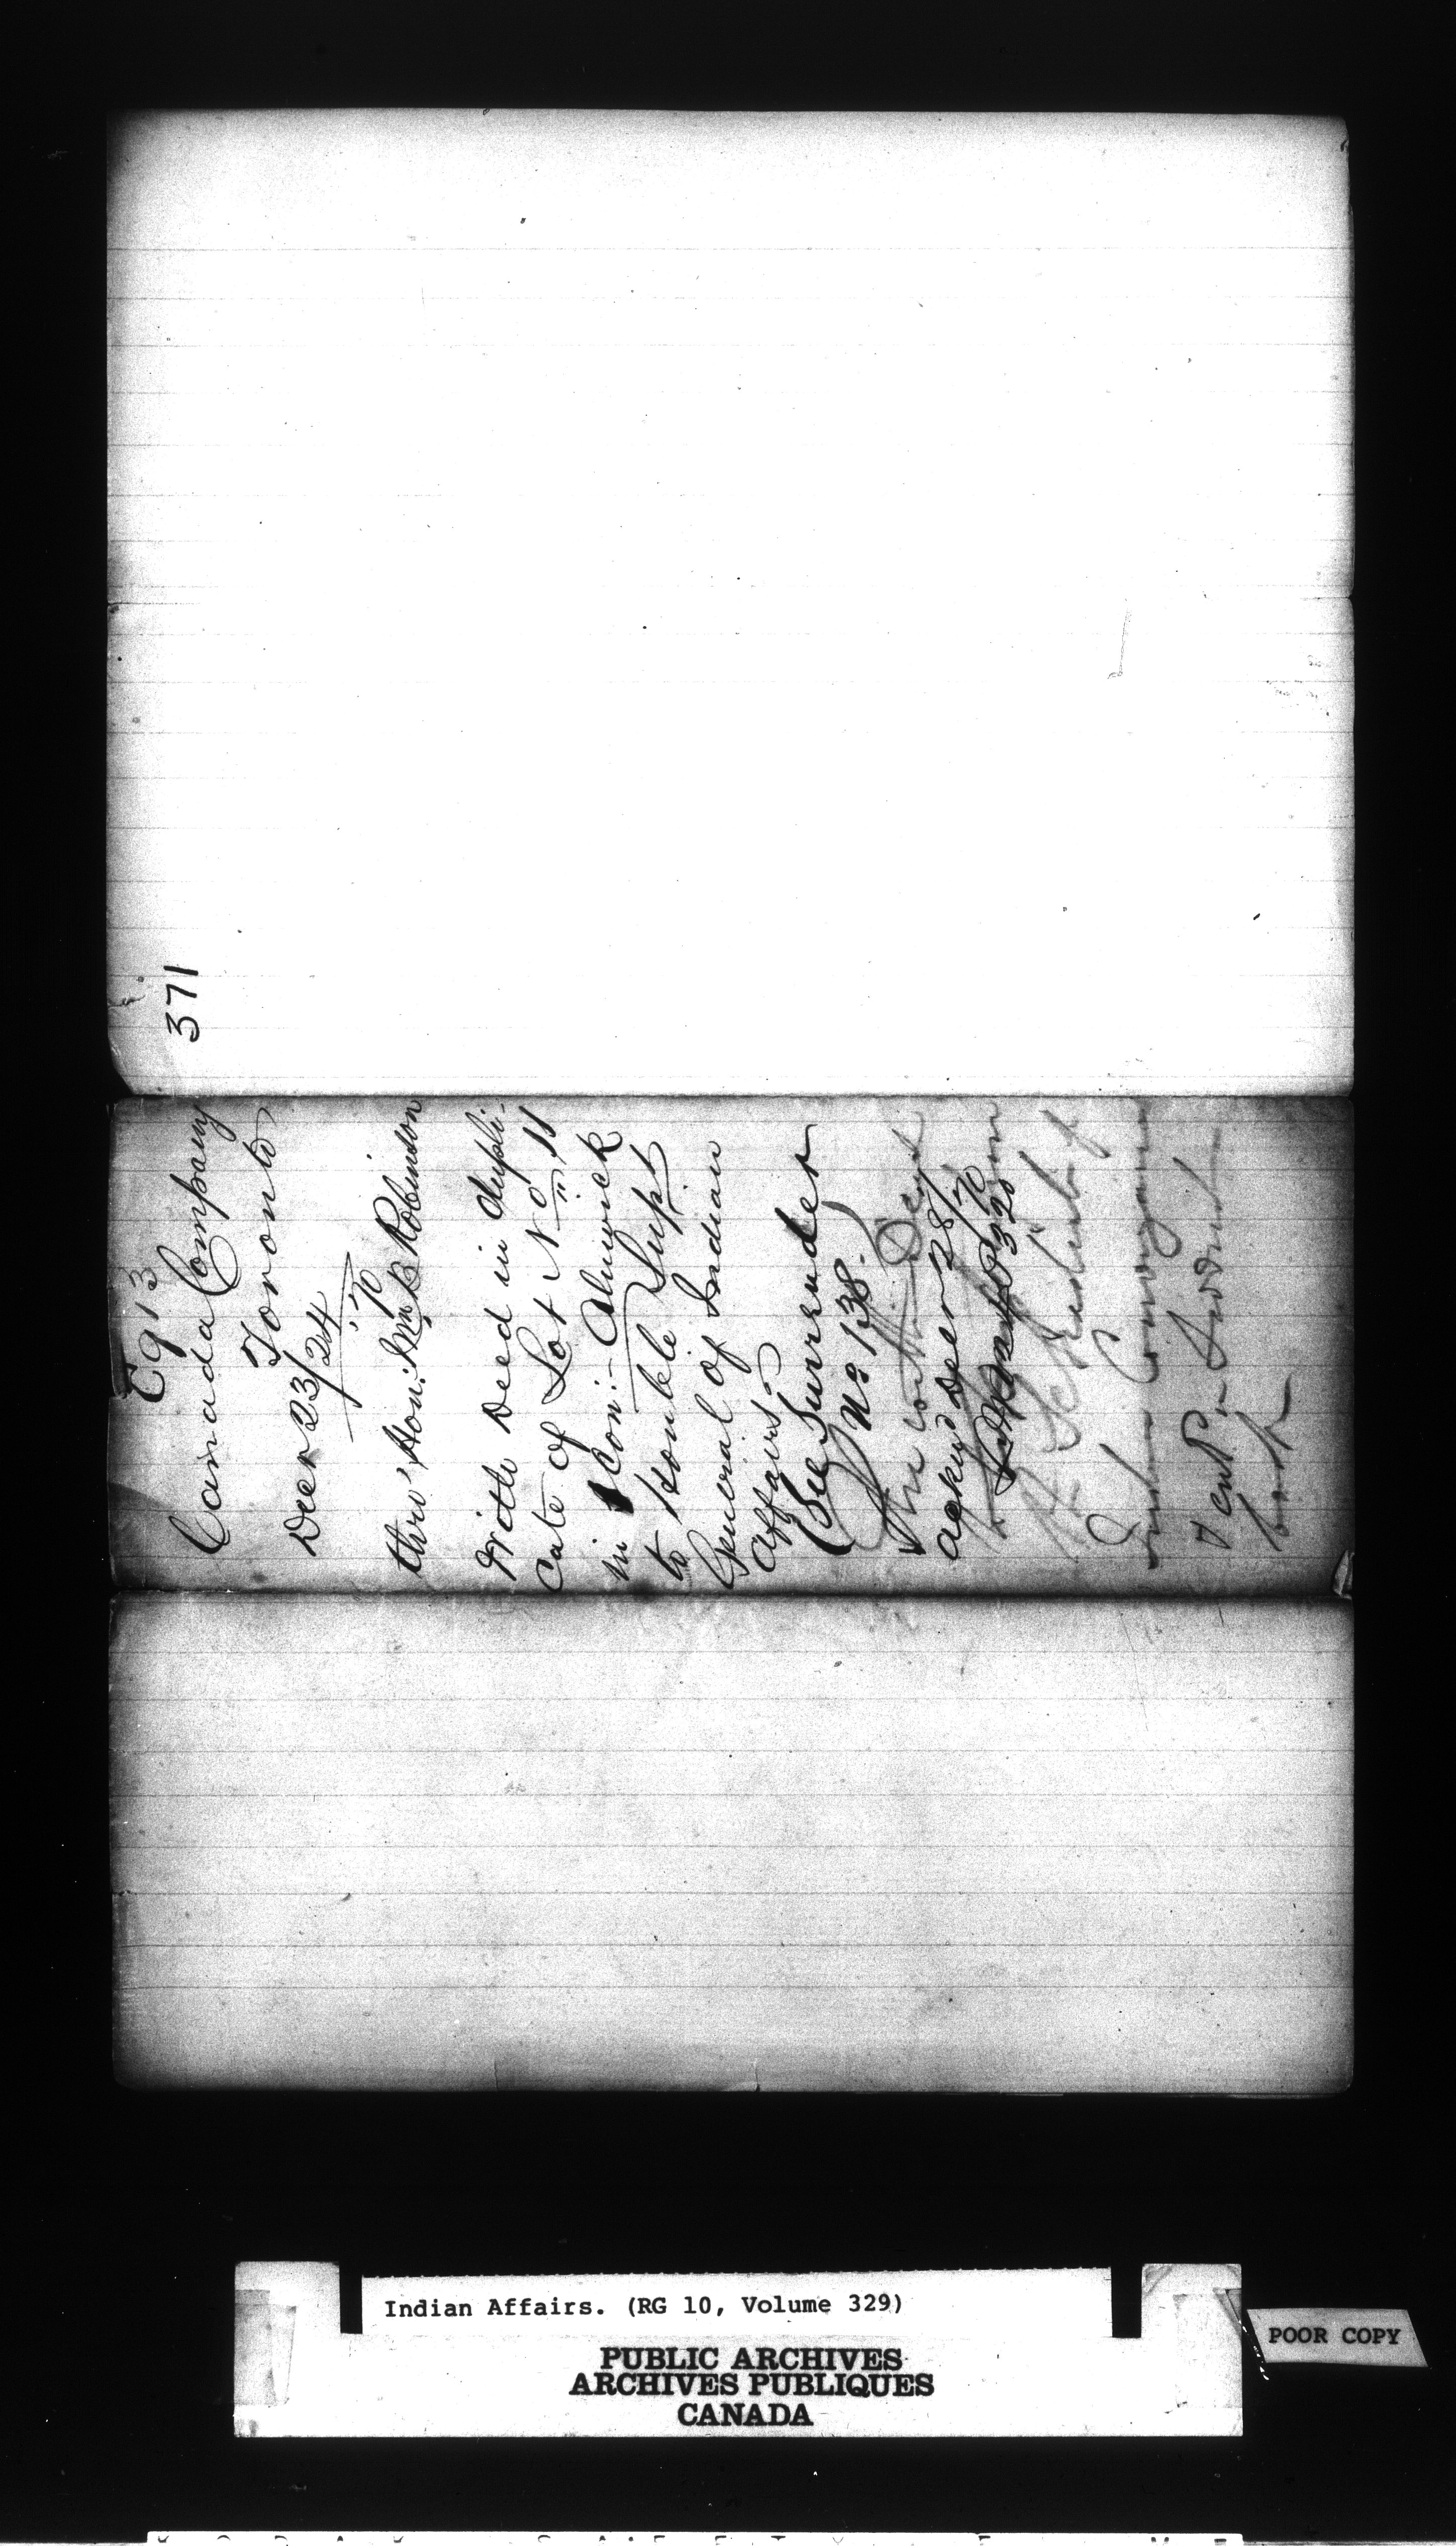 371
C 913
Canada Company
Toronto
Decr 23/24
/70
thro' Hon: Wm B Robinson
With Deed in dupli-
cate of Lot No 11
in 1 Con:- Alnwick
to Honble Supt
General of Indian
Affairs
(See Surrender
No 138.
the Dept
ackgd Decr 28/70
320
Schedule of
Indian
&
book
Indian Affairs. (RG 10, Volume 329)
PUBLIC ARCHIVES
ARCHIVES PUBLIQUES
CANADA
POOR COPY